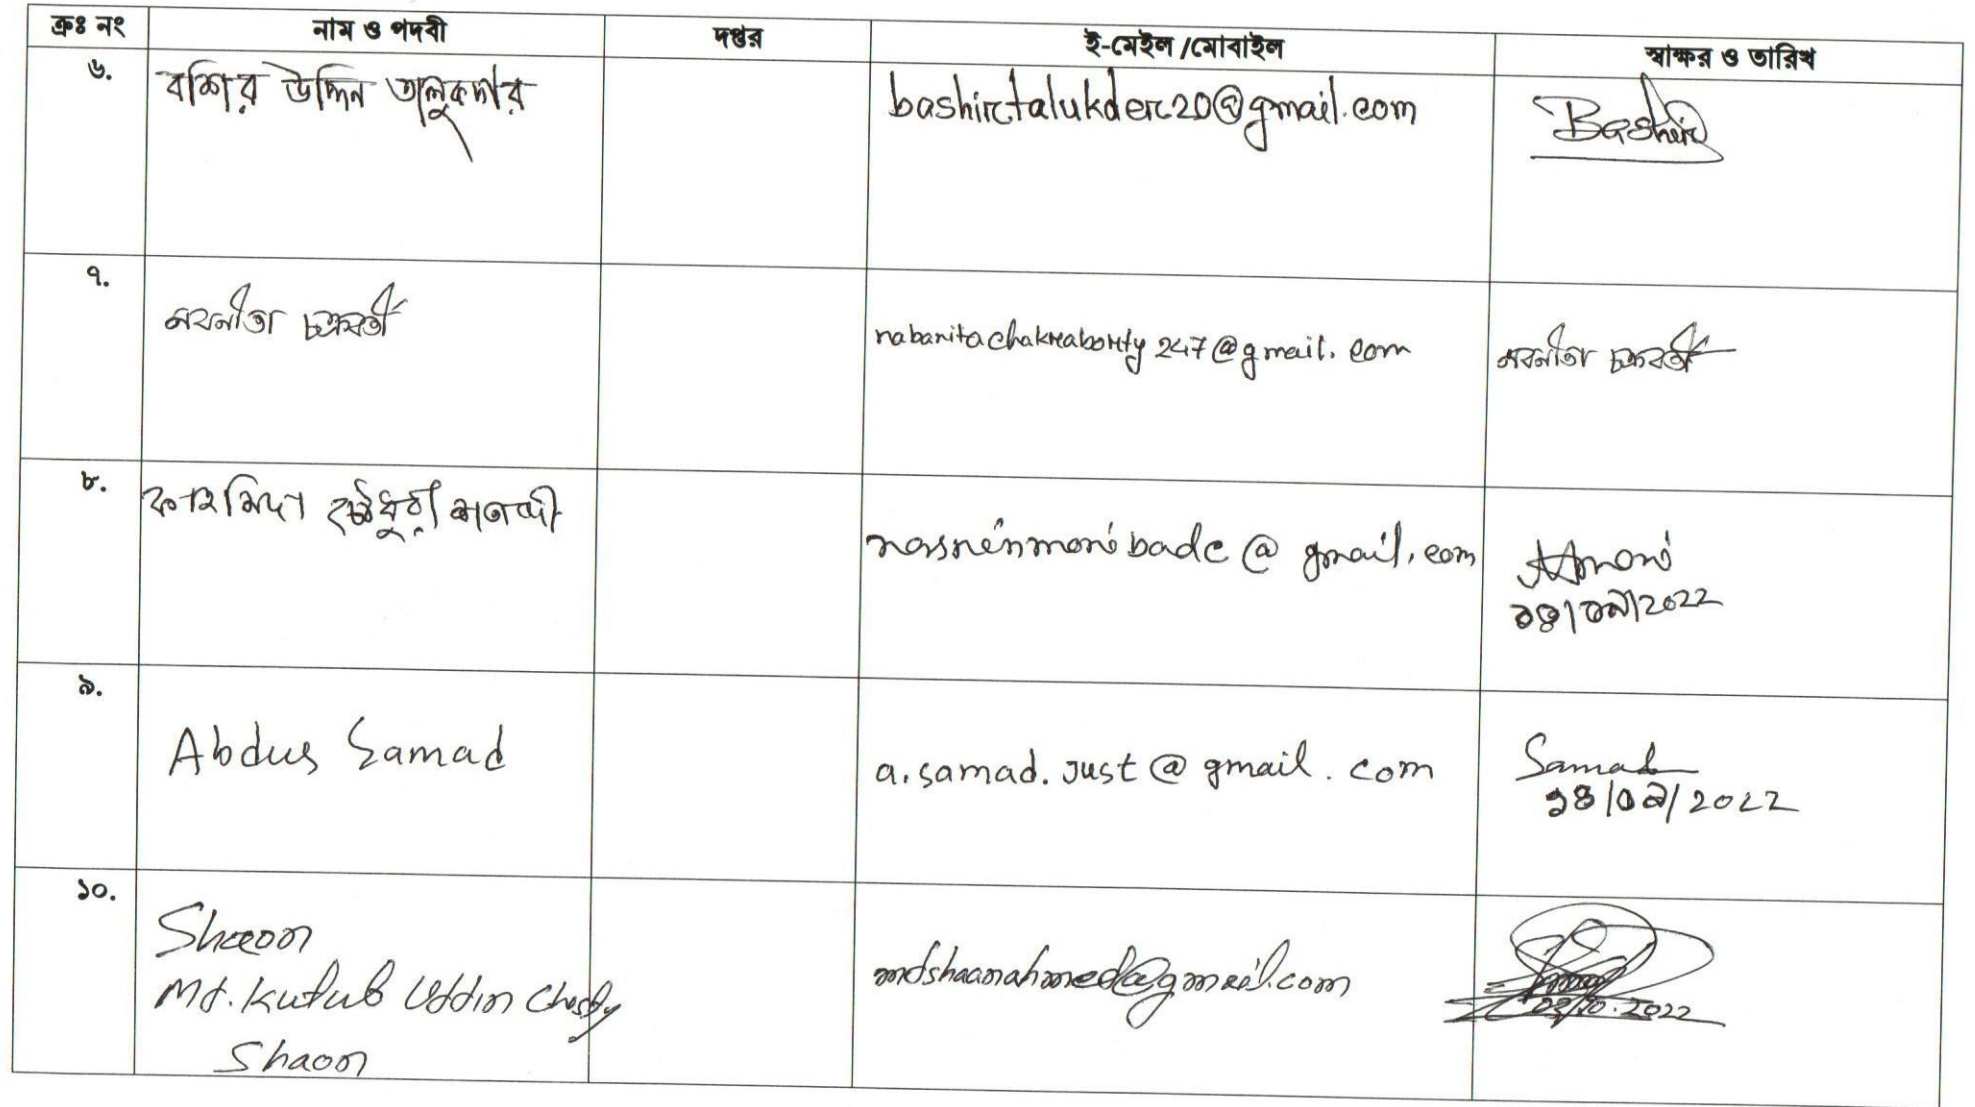 ক্রঃ নং নাম ও পদবী দপ্তর ই-মেইল /মোবাইল স্বাক্ষর ও তারিখ
৬. বশির উদ্দিন তালুকদার bashirtalukder20@gmail.com Bashir
৭. নবনীতা চক্রবর্তী nabanitachakraborty247@gmail.com নবনীতা চক্রবর্তী
৮. ফাহমিদা চৌধুরী nasrinmonibadc@gmail.com Moni
2022
৯. Abdus Samad a.samad.just@gmail.com Samad
১৪/০৯/2022
১০. Shaon
Md. Kutub Uddin Chisty mdshaonahmed@gmail.com
Shaon